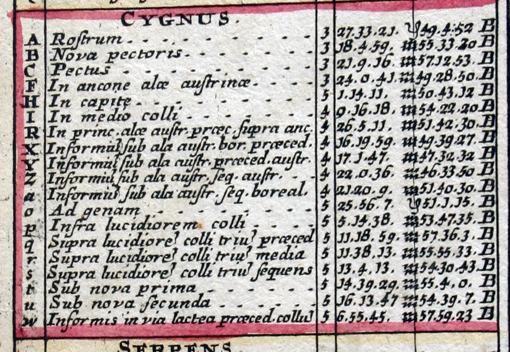 CYGNUS.
A Rostrum 3 27.33.21. ♑ 49.4.52 B
B Nova pectoris 3 18.4.59. ♒ 55.33.20 B
C Pectus 3 21.9.16. ♒ 57.12.53. B
F In ancone alæ austrinæ 3 24.0.41. ♒ 49.28.50 B
H In capite 5 1.14.11. ♒ 50.43.12 B
I In medio colli 4 9.16.18. ♒ 54.22.20 B
R In princ. alæ austr. præc. supra anc. 4 26.5.11. ♒ 51.42.30 B
X Informiũ sub ala austr. bor. præced. 4 16.19.59. ♒ 49.39.27. B
Y Informiũ sub ala austr. præced. austr. 4 17.1.47. ♒ 47.32.32 B
Z Informiũ sub ala austr. seq. austr. 4 22.0.36. ♒ 46.33.50 B
a Informiũ sub ala austr. seq. boreal. 4 21.20.9. ♒ 51.40.30 B
o Ad genam 5 25.56.7. ♑ 51.1.15. B
p Infra lucidiorem colli 5 5.14.38. ♒ 53.47.35. B
q Supra lucidiorẽ colli triũ præced 5 11.18.59. ♒ 57.36.3. B
r Supra lucidiorẽ colli triũ media 5 11.38.13. ♒ 55.55.33. B
s Supra lucidiorẽ colli triũ sequens 5 13.4.13. ♒ 54.30.43. B
t Sub nova prima 5 14.39.29. ♒ 55.4.0. B
u Sub nova secunda 5 16.13.47 ♒ 54.39.7. B
w Informis in via lactea præced. collũ 5 6.55.45. ♒ 57.59.23 B
SERPENS